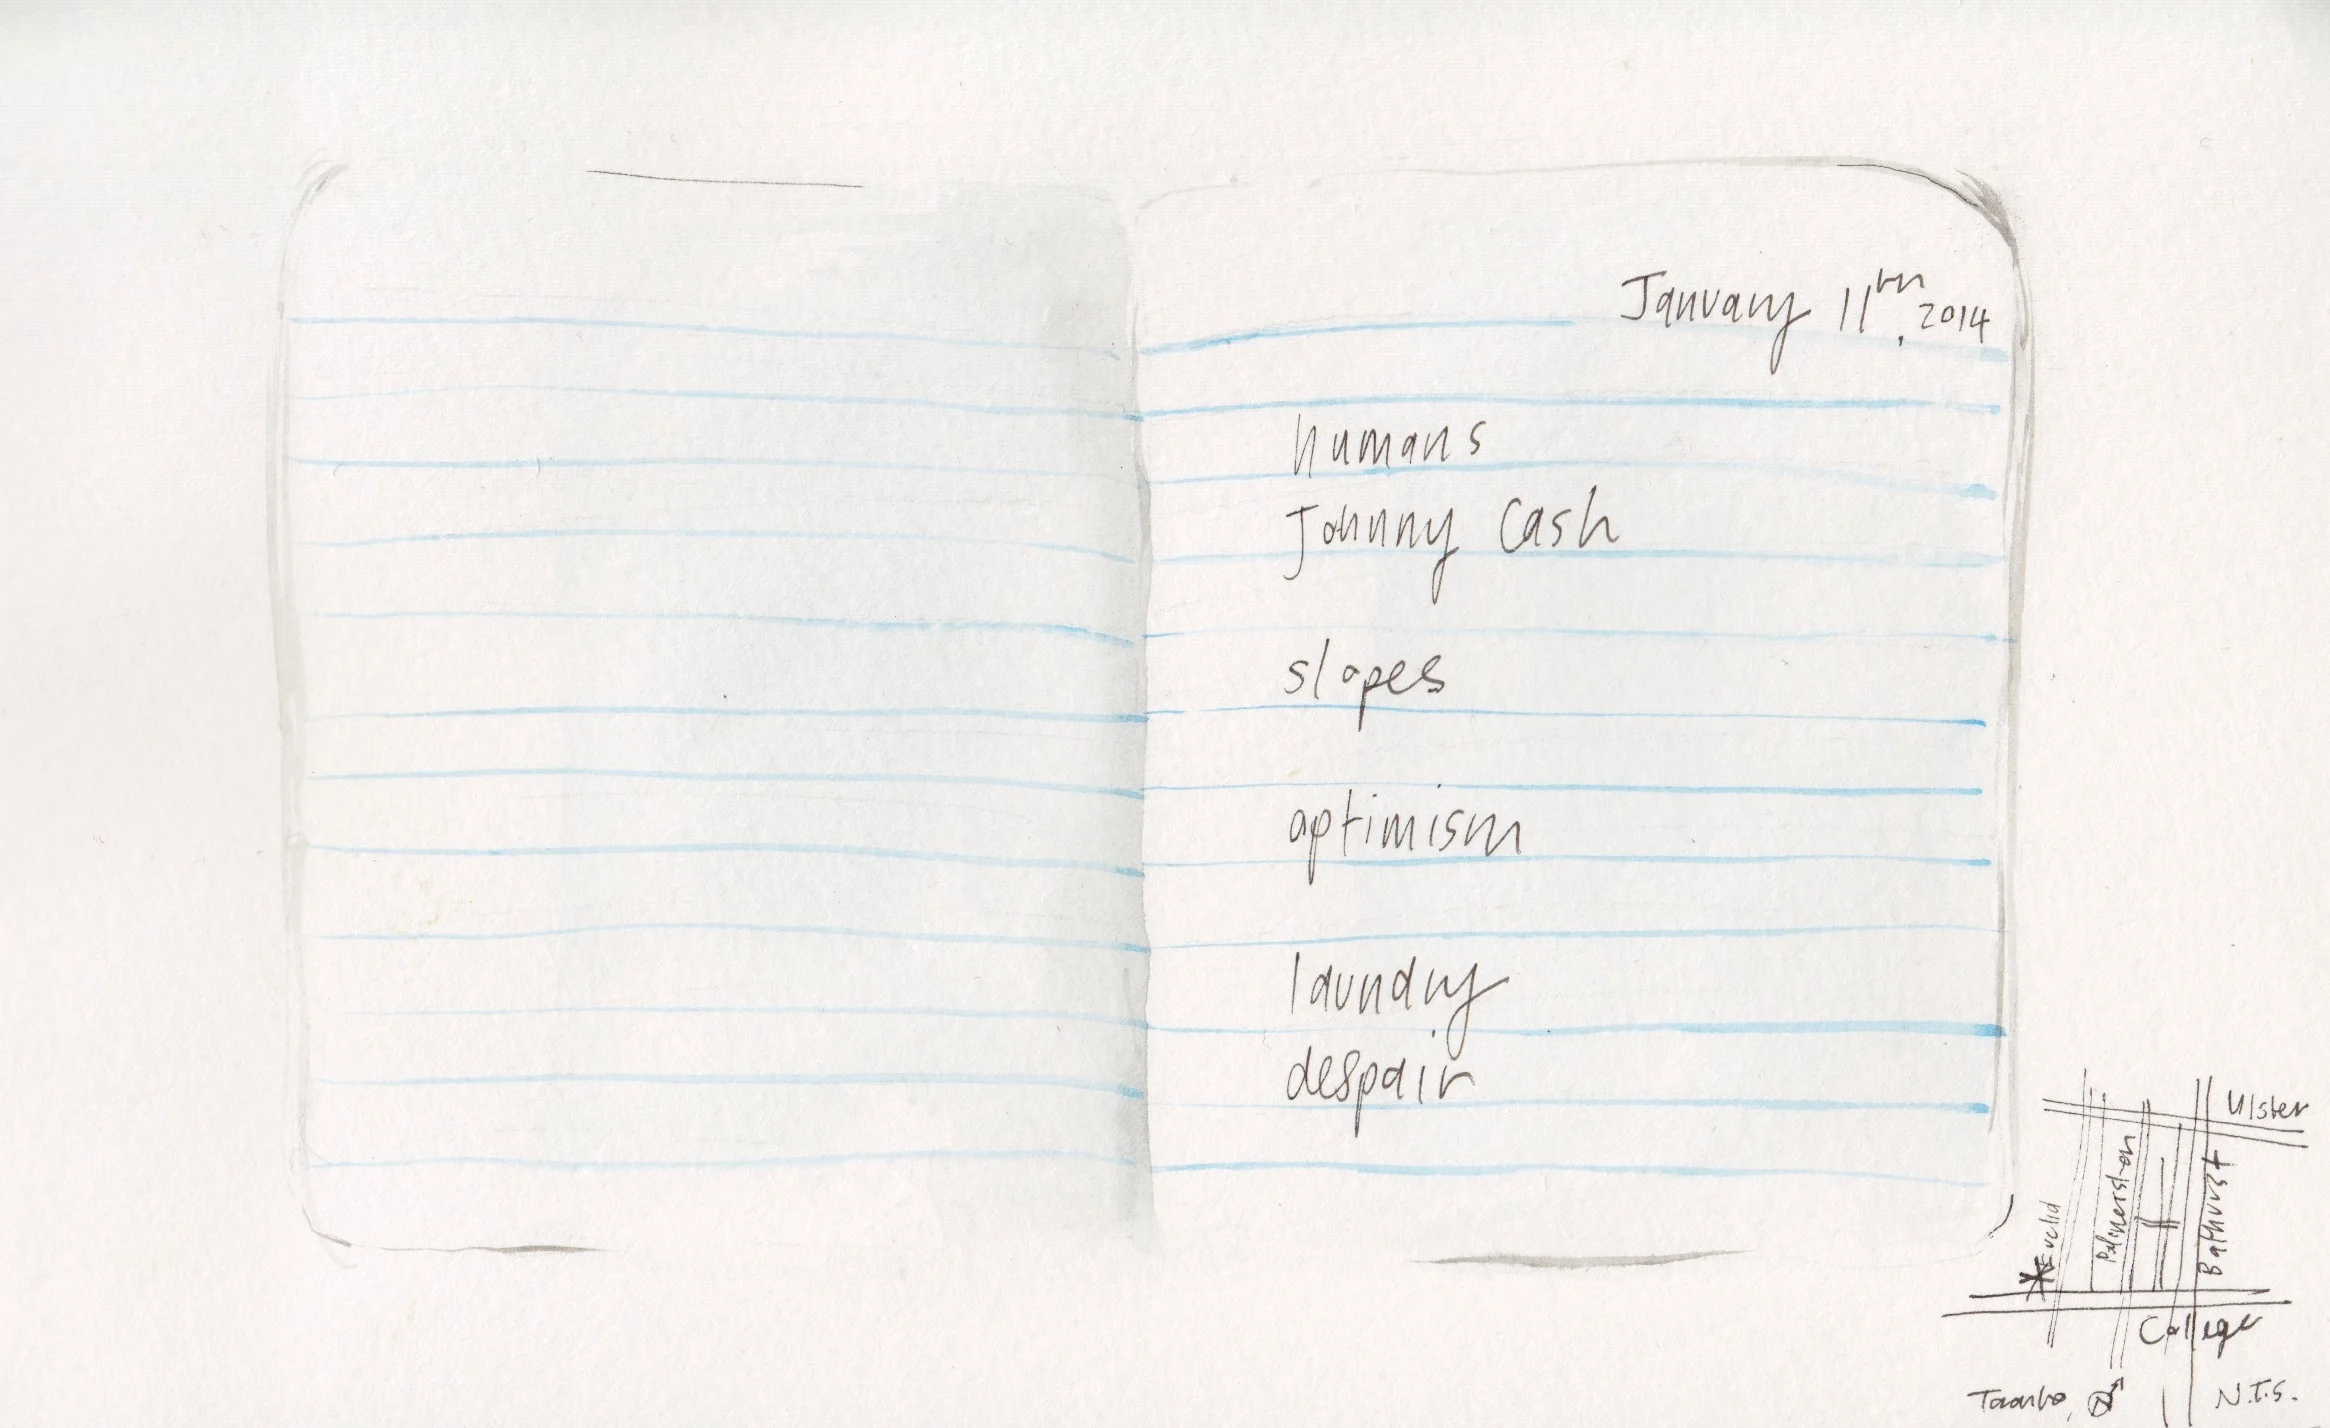 January 11th, 2014
humans
Johnny Cash
slopes
optimism
laundry
despair
Ulster
Euclid
Palmerston
Bathurst
College
Toronto, N
N.T.S.